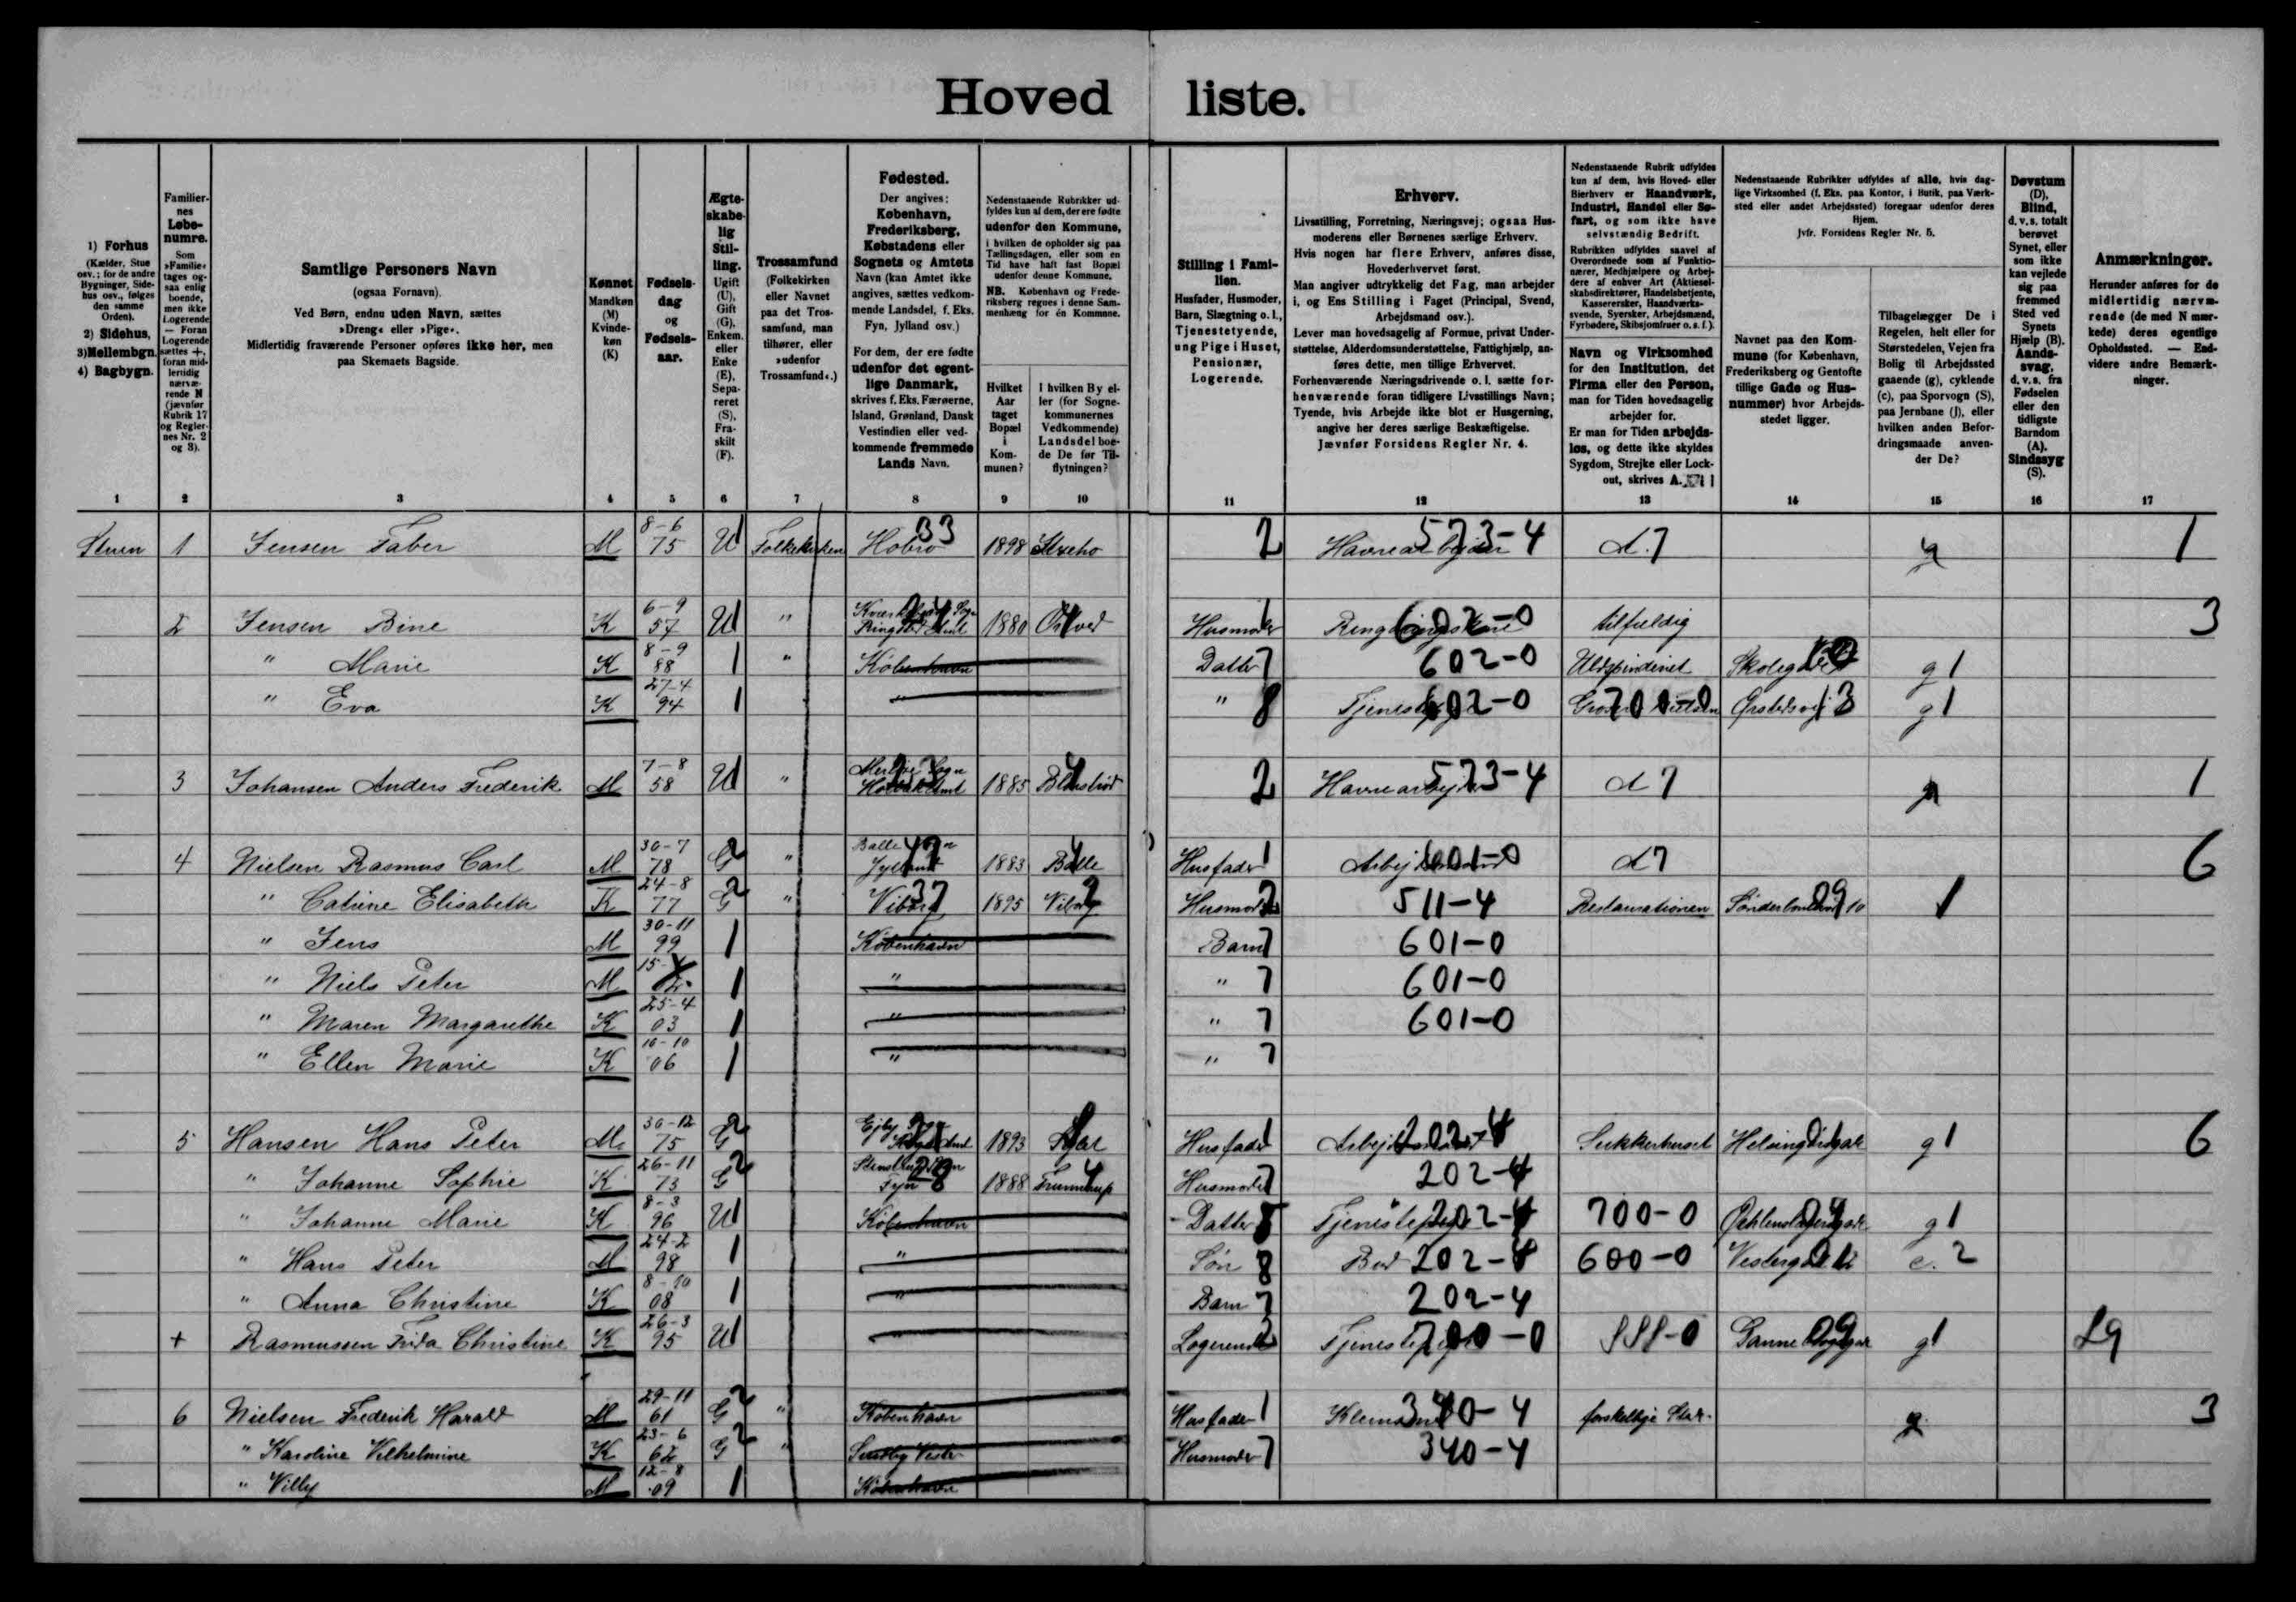 Hoved liste.
1) Forhus
(Kælder, Stue
osv.; for de andre
Bygninger, Side-
hus osv., følges
den samme
Orden).
2) Sidehus,
3) Mellembgn.
4) Bagbygn.
1
Familier-
nes
Løbe-
numre.
Som
»Familie«
tages og-
saa enlig
boende,
men ikke
Logerende
— Foran
Logerende
sættes +,
foran mid-
lertidig
nærvæ-
rende N
(jævnfør
Rubrik 17
og Regler-
nes Nr. 2
og 3).
2
Samtlige Personers Navn
(ogsaa Fornavn).
Ved Børn, endnu uden Navn, sættes
»Dreng« eller »Pige«.
Midlertidig fraværende Personer opføres ikke her, men
paa Skemaets Bagside.
3
Kønnet
Mandkøn
(M)
Kvinde-
køn
(K)
4
Fødsels-
dag
og
Fødsels-
aar.
5
Ægte-
skabe-
lig
Stil-
ling.
Ugift
(U),
Gift
(G),
Enkem.
eller
Enke
(E),
Sepa-
reret
(S),
Fra-
skilt
(F).
6
Trossamfund
(Folkekirken
eller Navnet
paa det Tros-
samfund, man
tilhører, eller
»udenfor
Trossamfund«.)
7
Fødested.
Der angives:
København,
Frederiksberg,
Købstadens eller
Sognets og Amtets
Navn (kan Amtet ikke
angives, sættes vedkom-
mende Landsdel, f. Eks.
Fyn, Jylland osv.)
For dem, der ere fødte
udenfor det egent-
lige Danmark,
skrives f. Eks. Færøerne,
Island, Grønland, Dansk
Vestindien eller ved-
kommende fremmede
Lands Navn.
8
Nedenstaaende Rubrikker ud-
fyldes kun af dem, der ere fødte
udenfor den Kommune,
i hvilken de opholder sig paa
Tællingsdagen, eller som en
Tid have haft fast Bopæl
udenfor denne Kommune.
NB. København og Frede-
riksberg regnes i denne Sam-
menhæng for én Kommune.
Hvilket
Aar
taget
Bopæl
i
Kom-
munen?
9
I hvilken By el-
ler (for Sogne-
kommunernes
Vedkommende)
Landsdel boe-
de De før Til-
flytningen?
10
Stilling i Fami-
lien.
Husfader, Husmoder,
Barn, Slægtning o. l.,
Tjenestetyende,
ung Pige i Huset,
Pensionær,
Logerende.
11
Erhverv.
Livsstilling, Forretning, Næringsvej; ogsaa Hus-
moderens eller Børnenes særlige Erhverv.
Hvis nogen har flere Erhverv, anføres disse,
Hovederhvervet først.
Man angiver udtrykkelig det Fag, man arbejder
i, og Ens Stilling i Faget (Principal, Svend,
Arbejdsmand osv.).
Lever man hovedsagelig af Formue, privat Under-
støttelse, Alderdomsunderstøttelse, Fattighjælp, an-
føres dette, men tillige Erhvervet.
Forhenværende Næringsdrivende o. l. sætte for-
henværende foran tidligere Livsstillings Navn;
Tyende, hvis Arbejde ikke blot er Husgerning,
angive her deres særlige Beskæftigelse.
Jævnfør Forsidens Regler Nr. 4.
12
Nedenstaaende Rubrik udfyldes
kun af dem, hvis Hoved- eller
Bierhverv er Haandværk,
Industri, Handel eller Sø-
fart, og som ikke have
selvstændig Bedrift.
Rubrikken udfyldes saavel af
Overordnede som af Funktio-
nærer, Medhjælpere og Arbej-
dere af enhver Art (Aktiesel-
skabsdirektører, Handelsbetjente,
Kasserersker, Haandværks-
svende, Syersker, Arbejdsmænd,
Fyrbødere, Skibsjomfruer o. s. f.).
Navn og Virksomhed
for den Institution, det
Firma eller den Person,
man for Tiden hovedsagelig
arbejder for.
Er man for Tiden arbejds-
løs, og dette ikke skyldes
Sygdom, Strejke eller Lock-
out, skrives A.
13
Nedenstaaende Rubrikker udfyldes af alle, hvis dag-
lige Virksomhed (f. Eks. paa Kontor, i Butik, paa Værk-
sted eller andet Arbejdssted) foregaar udenfor deres
Hjem.
Jvfr. Forsidens Regler Nr. 5.
Navnet paa den Kom-
mune (for København,
Frederiksberg og Gentofte
tillige Gade og Hus-
nummer) hvor Arbejds-
stedet ligger.
14
Tilbagelægger De i
Regelen, helt eller for
Størstedelen, Vejen fra
Bolig til Arbejdssted
gaaende (g), cyklende
(c), paa Sporvogn (S),
paa Jernbane (J), eller
hvilken anden Befor-
dringsmaade anven-
der De?
15
Døvstum
(D),
Blind,
d. v. s. totalt
berøvet
Synet, eller
som ikke
kan vejlede
sig paa
fremmed
Sted ved
Synets
Hjælp (B).
Aands-
svag,
d. v. s. fra
Fødselen
eller den
tidligste
Barndom
(A).
Sindssyg
(S).
16
Anmærkninger.
Herunder anføres for de
midlertidig nærvæ-
rende (de med N mær-
kede) deres egentlige
Opholdssted. — End-
videre andre Bemærk-
ninger.
17
Stuen 1 Jensen Faber M 8-6 75 U Folkekirken Hobro 33 1898 2 Havnearbejder 573-4 A. 7 g 1
2 Jensen Bine K 6-9 57 U " Ringsted Amt 1880 Husmoder 1 602-0 tilfældig 3
" Marie K 8-9 88 1 " København Datter 7 602-0 Uldspinderiet g 1
" Eva K 27-4 94 1 " " 8 602-0 700-0 Ørstedsvej 13 g 1
3 Johansen Anders Frederik M 7-8 58 U " Sogn Holbæk Amt 1885 2 Havnearbejder 573-4 A 7 g 1
4 Nielsen Rasmus Carl M 30-7 78 G 2 " Balle Sogn Jylland 1883 Balle Husfader 1 Arbejdsmand 601-0 A 7 6
" Catrine Elisabeth K 24-8 77 G 2 " Viborg 37 1895 Viborg 2 Husmoder 511-4 Restaurationen 1
" Jens M 30-11 99 1 København Barn 7 601-0
" Niels Peter M 15- 1 " " 7 601-0
" Maren Margarethe K 25-4 03 1 " " 7 601-0
" Ellen Marie K 10-10 06 1 " " 7
5 Hansen Hans Peter M 30-12 75 G 2 Ejby 1893 Husfader 1 Arbejdsmand 202-4 Sukkerhuset g 1 6
" Johanne Sophie K 26-11 73 G 2 Fyn 1888 Husmoder 7 202-4
" Johanne Marie K 8-3 96 U København Datter 8 Tjenestepige 202-4 700-0 g 1
" Hans Peter M 24-2 98 1 " Søn 8 Bud 202-4 600-0 c. 2
" Anna Christine K 8-10 08 1 " Barn 7 202-4
+ Rasmussen Frida Christine K 26-3 95 U " Logerende 2 Tjenestepige 700-0 g 1 L9
6 Nielsen Frederik Harald M 29-11 61 G 2 " København Husfader 1 340-4 g 3
" Karoline Vilhelmine K 23-6 62 G 2 " Sundby Vester Husmoder 7 340-4
" Villy M 12-8 09 1 København